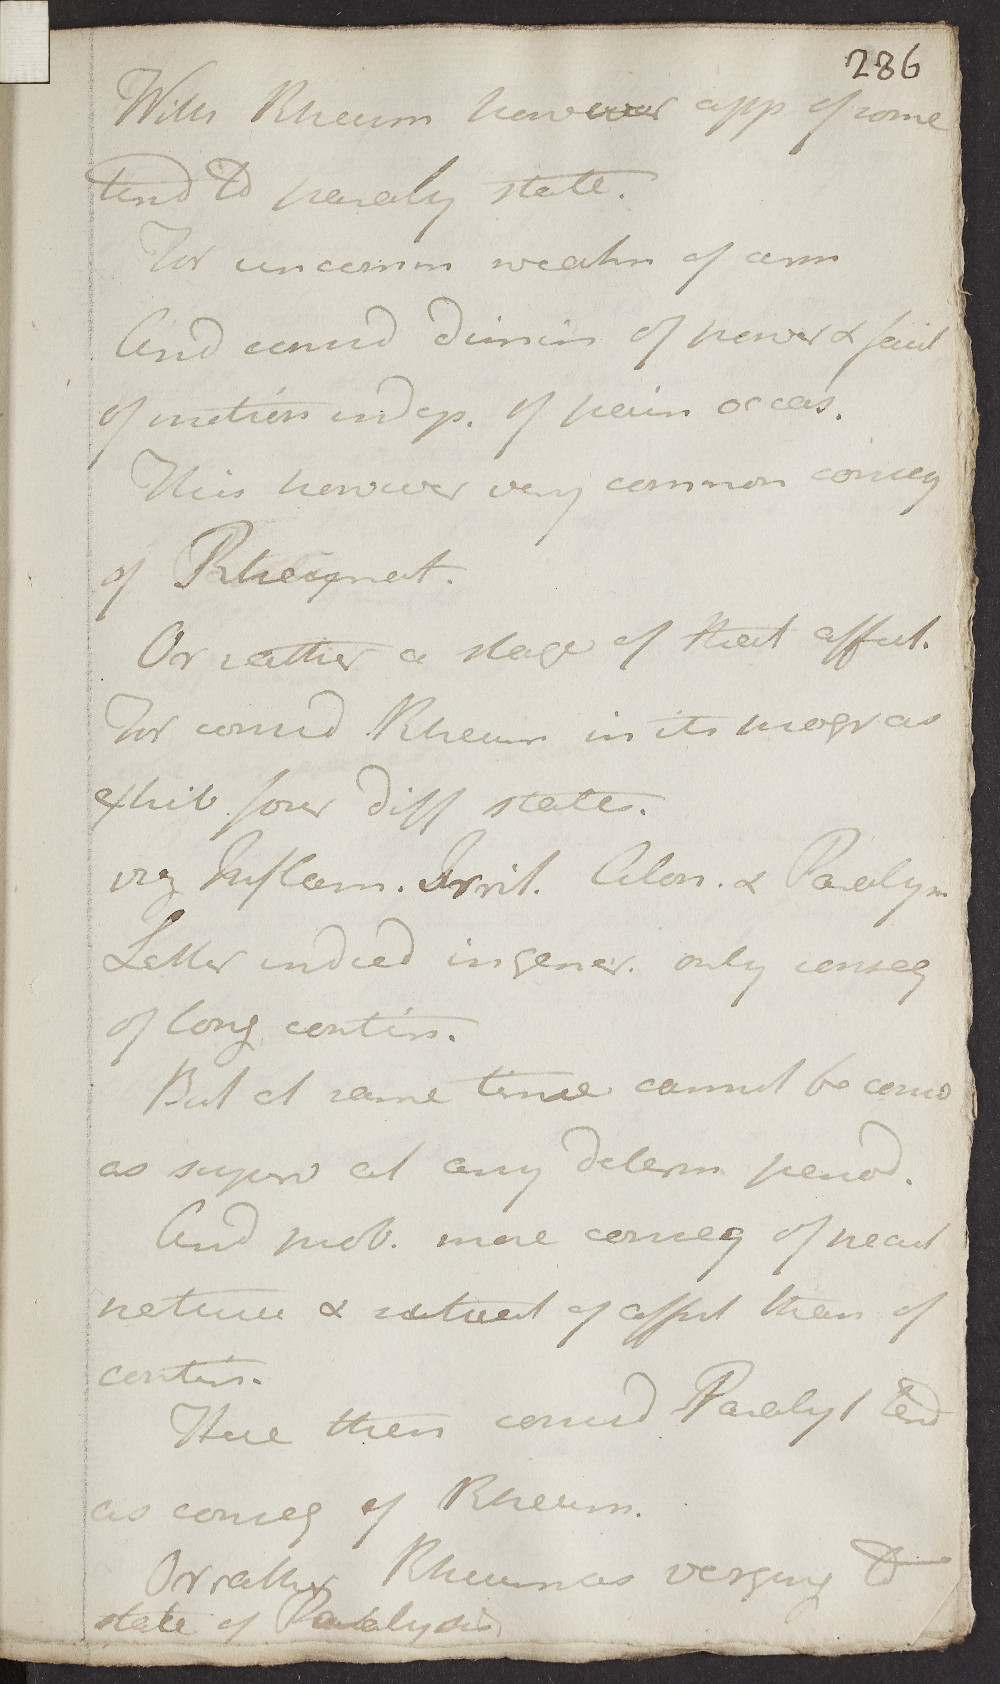 286
With Rheum however app of some
tend to paraly state.
For uncomm weakn of arm
And consid dimin of power & facil
of motion indep. of pain occas.
This however very common conseq
of Rheumat.
Or rather a stage of that affect.
For consid Rheum in its progr as
exhib four diff states.
viz Inflam. Irrit. Aton. & Paralym
Latter indeed in gener. only conseq
of long contin.
But at same time cannot be consid
as superv at any determ period.
And prob. more conseq of pecul
nature & of affect than of
contin.
Here then consid Paralyt tend
as conseq of Rheum.
Or rather Rheum as verging to
state of Paralysis